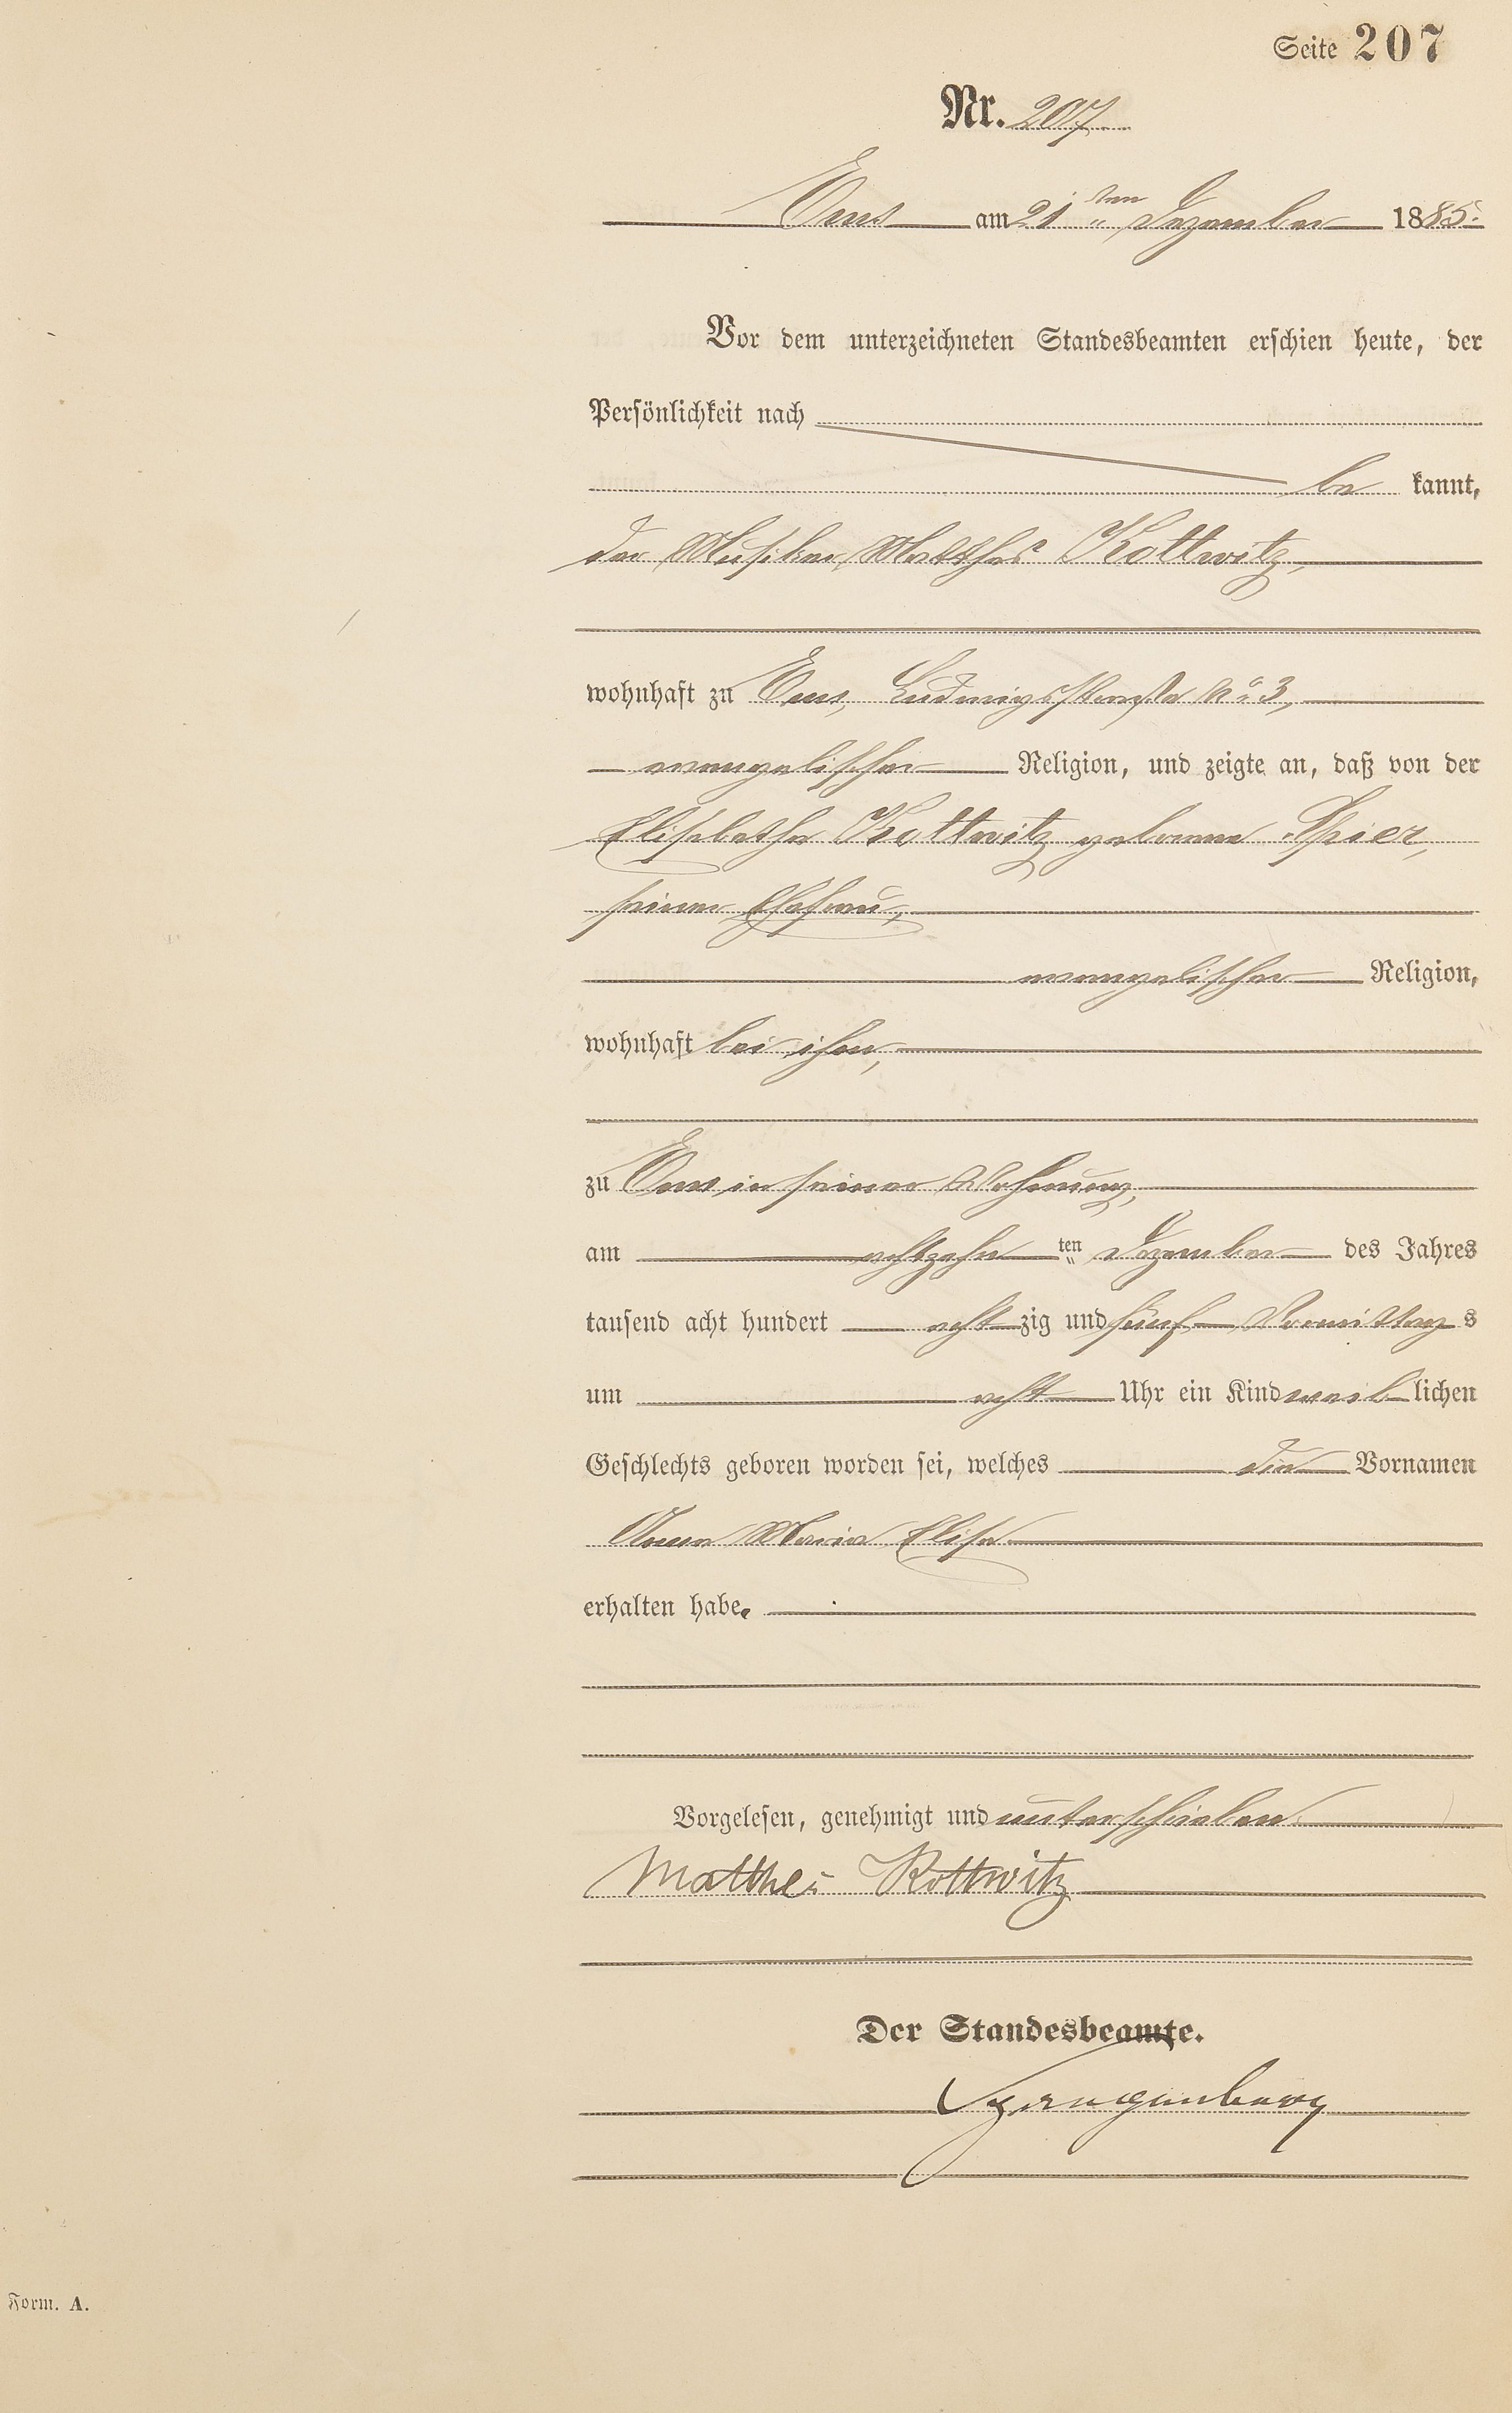 Seite 207
Nr. 207.
Ems am 21ten Dezember 1885.
Vor dem unterzeichneten Standesbeamten erschien heute, der
Persönlichkeit nach
be kannt,
der Musiker Matthes Kottwitz,
wohnhaft zu Ems, Ludwigsstraße No 3,
evangelischer Religion, und zeigte an, daß von der
Elisabetha Kottwitz geborene Spier,
seiner Ehefrau,
evangelischer Religion,
wohnhaft bei ihm,
zu Ems in seiner Wohnung,
am achtzehn ten Dezember des Jahres
tausend acht hundert acht zig und fünf Vormittag s
um acht Uhr ein Kind weib lichen
Geschlechts geboren worden sei, welches die Vornamen
Anna Maria Elisa
erhalten habe.
Vorgelesen, genehmigt und unterschrieben
Matthes Kottwitz
Der Standesbeamte.
Form. A.